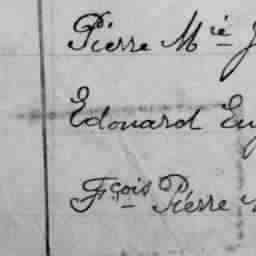 Pierre Mié
Edouard
Fçois Pierre